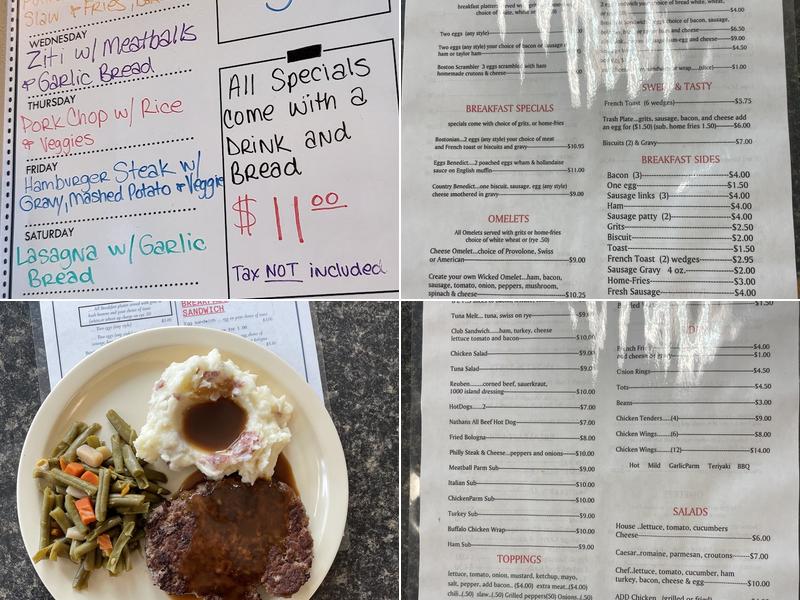 Slaw & Fries,
WEDNESDAY
Ziti w/ Meatballs
& Garlic Bread
THURSDAY
Pork Chop w/ Rice
& Veggies
FRIDAY
Hamburger Steak w/
Gravy, Mashed Potato & Veggie
SATURDAY
Lasagna w/ Garlic
Bread
All Specials
come with a
DRINK AND
Bread
$11.00
Tax NOT included
Two eggs (any style)
Two eggs (any style) your choice of bacon or sausage
ham or taylor ham
Boston Scrambler 3 eggs scrambled with ham
homemade croutons & cheese
BREAKFAST SPECIALS
specials come with choice of grits, or home-fries
Bostonian...2 eggs (any style) your choice of meat
and French toast or biscuits and gravy $10.95
Eggs Benedict....2 poached eggs wham & hollandaise
sauce on English muffin $11.00
Country Benedict...one biscuit, sausage, egg (any style)
cheese smothered in gravy $9.00
OMELETS
All Omelets served with grits or home-fries
choice of white wheat or (rye .50)
Cheese Omelet...choice of Provolone, Swiss
or American $9.00
Create your own Wicked Omelet...ham, bacon,
sausage, tomato, onion, peppers, mushroom,
spinach & cheese $10.25
$4.00
$6.50
$9.00
$4.50
$1.00
SWEET & TASTY
French Toast (6 wedges) $5.75
Trash Plate...grits, sausage, bacon, cheese and add
an egg for ($1.50) (sub. home fries 1.50) $6.00
Biscuits (2) & Gravy $7.00
BREAKFAST SIDES
Bacon (3) $4.00
One egg $1.50
Sausage links (3) $4.00
Ham $4.00
Sausage patty (2) $4.00
Grits $2.50
Biscuit $2.00
Toast $1.50
French Toast (2) wedges $2.95
Sausage Gravy 4 oz. $2.00
Home-Fries $3.00
Fresh Sausage $4.00
BREAKFAST
SANDWICH
Tuna Melt... tuna, swiss on rye
Club Sandwich.....ham, turkey, cheese
lettuce tomato and bacon $10.00
Chicken Salad $9.00
Tuna Salad $9.00
Reuben........corned beef, sauerkraut,
1000 island dressing $10.00
HotDogs.....2 $7.00
Nathans All Beef Hot Dog $7.00
Fried Bologna $8.00
Philly Steak & Cheese...peppers and onions $10.00
Meatball Parm Sub $10.00
Italian Sub $10.00
ChickenParm Sub $10.00
Turkey Sub $9.00
Buffalo Chicken Wrap $10.00
Ham Sub $9.00
TOPPINGS
lettuce, tomato, onion, mustard, ketchup, mayo,
salt, pepper, add bacon..($4.00) extra meat..($4.00)
chili..(.50) slaw..(.50) Grilled peppers(50) Onions..(.50)
$1.50
French Fries $4.00
$1.00
Onion Rings $4.50
Tots $4.50
Beans $3.00
Chicken Tenders....(4) $9.00
Chicken Wings.....(6) $8.00
Chicken Wings.....(12) $14.00
Hot Mild GarlicParm Teriyaki BBQ
SALADS
House ..lettuce, tomato, cucumbers
Cheese $6.00
Caesar..romaine, parmesan, croutons $7.00
Chef..lettuce, tomato, cucumber, ham
turkey, bacon, cheese & egg $10.00
ADD Chicken (grilled or fried)